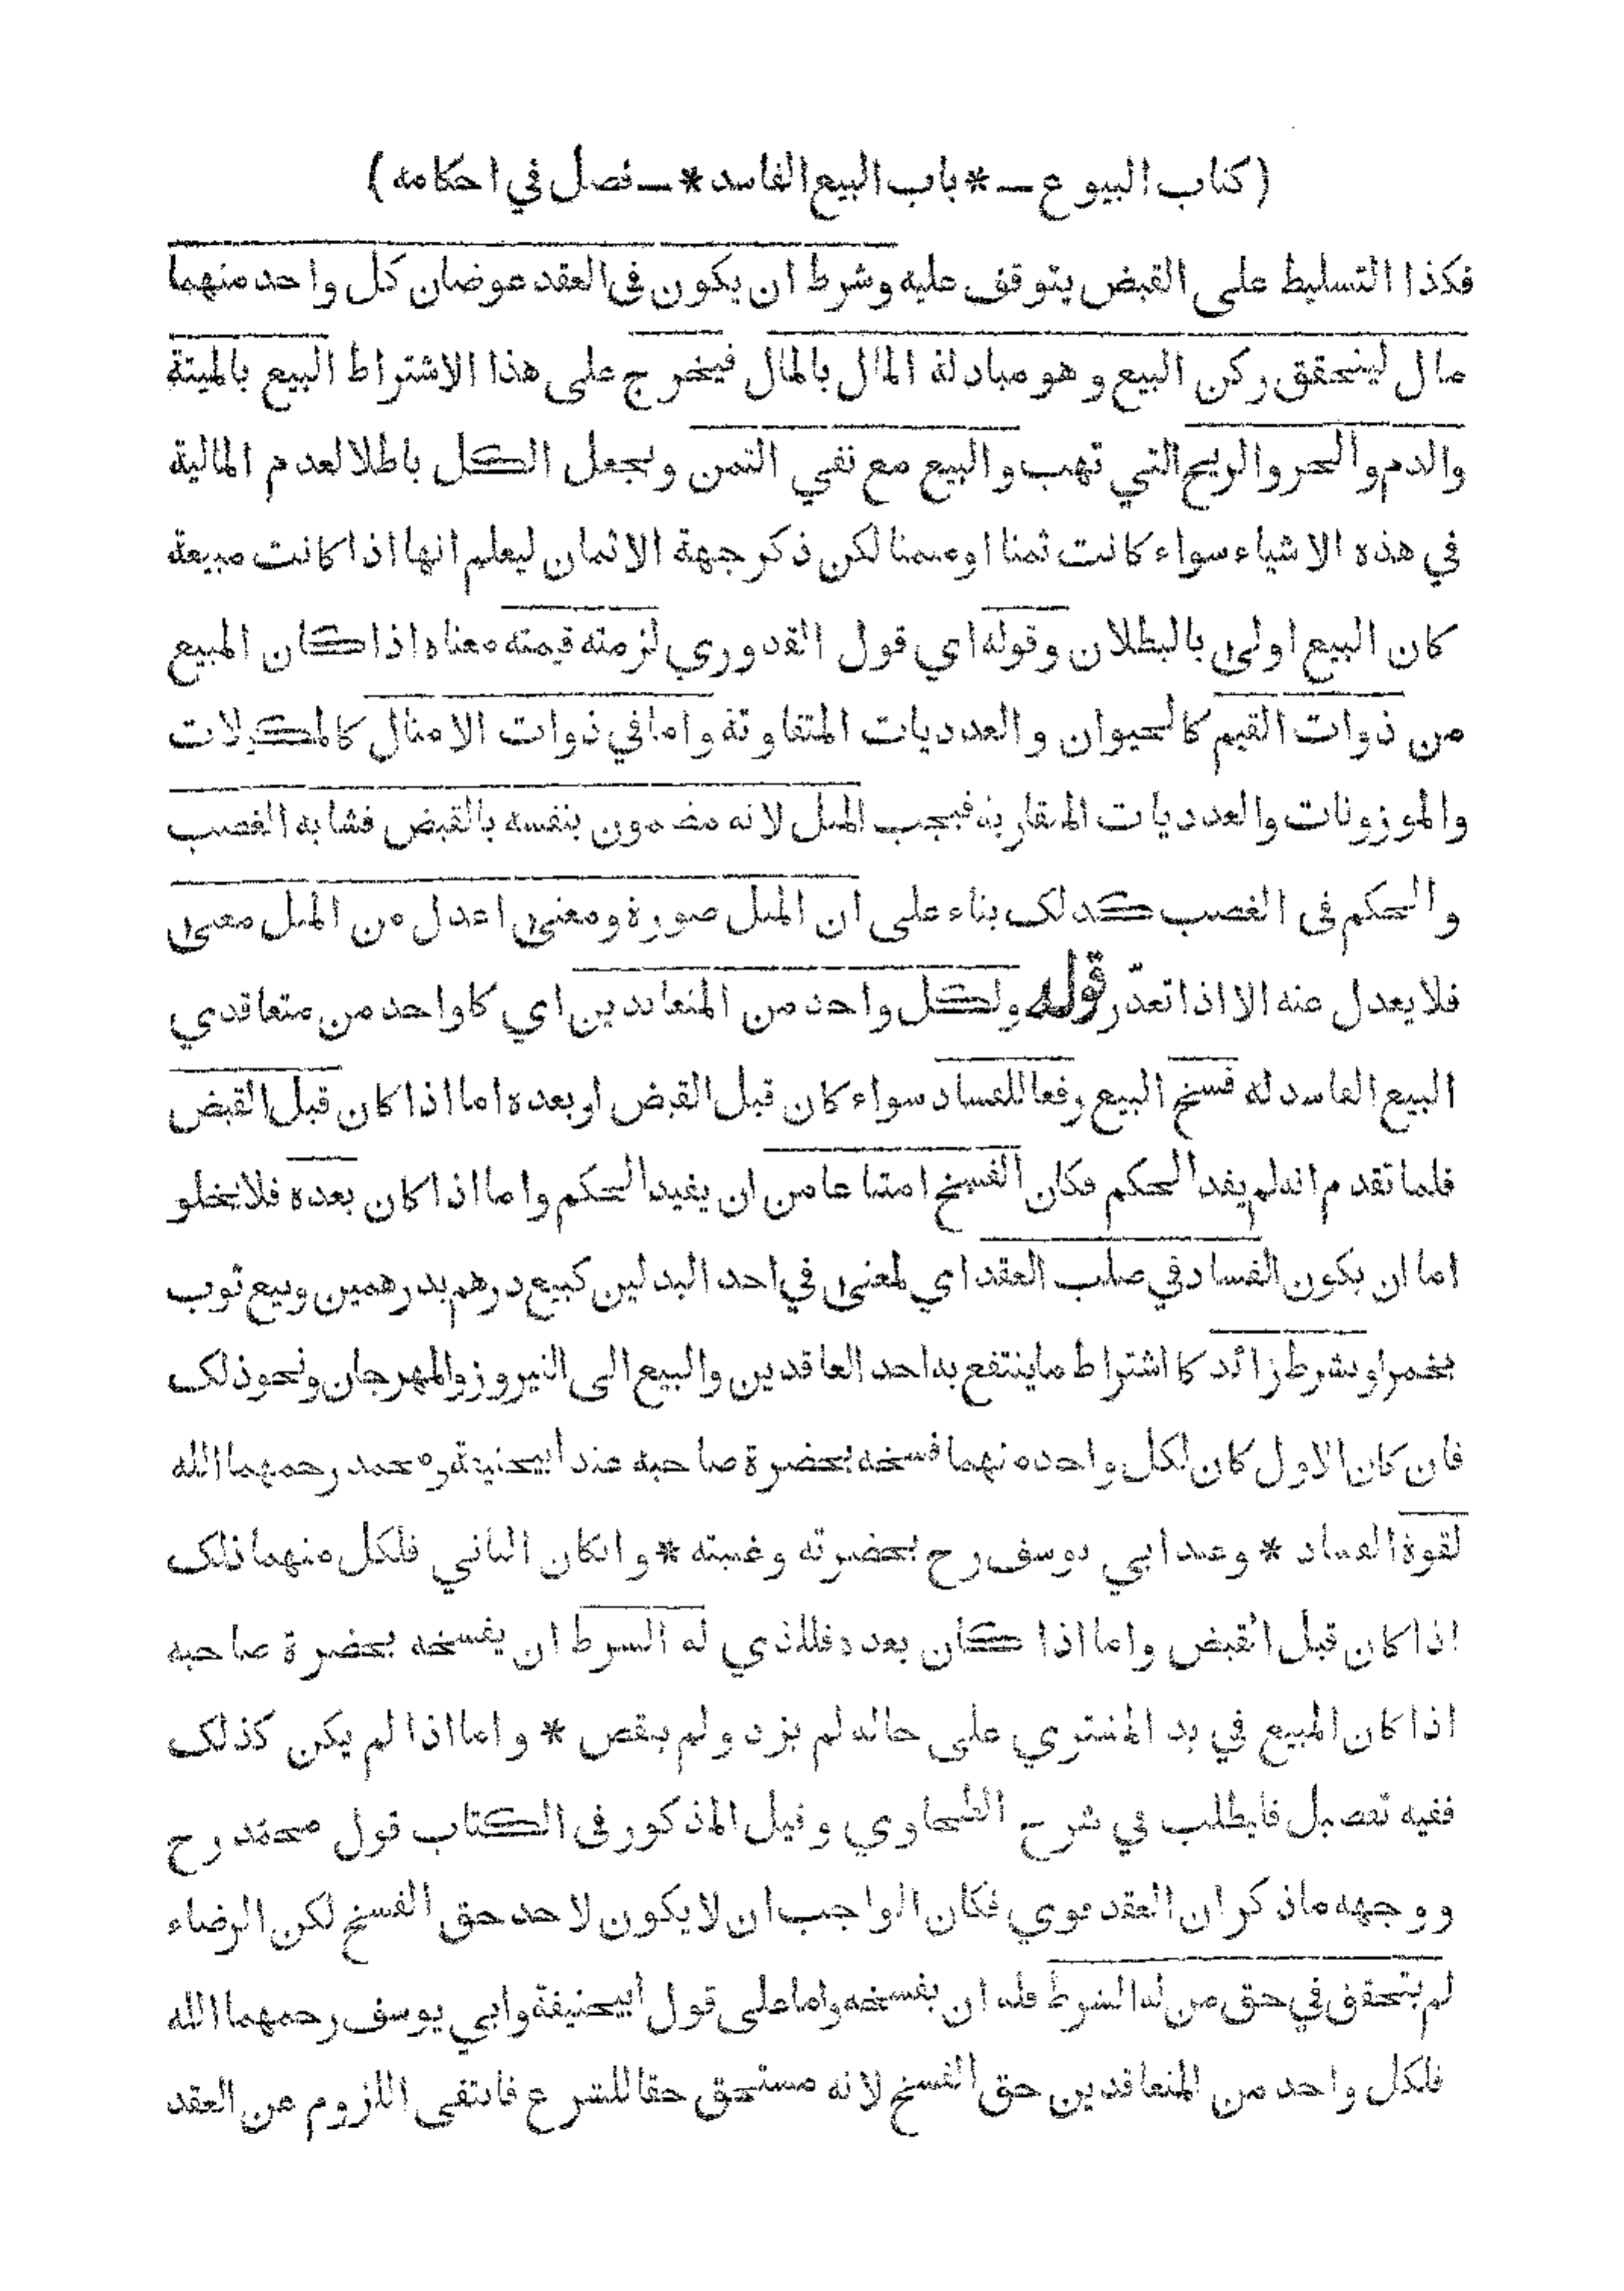 (كتاب البيوع ــ * باب البيع الفاسد * ــ فصل في احكامه)
فكذا التسليط على القبض يتوقف عليه وشرط ان يكون في العقد عوضان كل واحد منهما
مال ليتحقق ركن البيع وهو مبادلة المال بالمال فيخرج على هذا الاشتراط البيع بالميتة
والدم والحر والريح التي تهب والبيع مع نفي الثمن ويجعل الكل باطلا لعدم المالية
في هذه الاشياء سواء كانت ثمنا او مثمنا لكن ذكر جهة الاثمان ليعلم انها اذا كانت مبيعة
كان البيع اولى بالبطلان وقوله اي قول القدوري لزمته قيمته معناه اذا كان المبيع
من ذوات القيم كالحيوان والعدديات المتفاوتة واما في ذوات الامثال كالمكيلات
والموزونات والعدديات المتقاربة فيجب المثل لانه مضمون بنفسه بالقبض فشابه الغصب
والحكم في الغصب كذلك بناء على ان المثل صورة ومعنى اعدل من المثل معنى
فلا يعدل عنه الا اذا تعذر قوله ولكل واحد من المتعاقدين اي كل واحد من متعاقدي
البيع الفاسد له فسخ البيع رفعا للفساد سواء كان قبل القبض او بعده اما اذا كان قبل القبض
فلما تقدم انه لم يفد الحكم فكان الفسخ امتناعا من ان يفيد الحكم واما اذا كان بعده فلا يخلو
اما ان يكون الفساد في صلب العقد اي لمعنى في احد البدلين كبيع درهم بدرهمين وبيع ثوب
بخمر او بشرط زائد كاشتراط ما ينتفع به احد العاقدين والبيع الى النيروز والمهرجان ونحو ذلك
فان كان الاول كان لكل واحد منهما فسخه بحضرة صاحبه عند ابيحنيفة ومحمد رحمهما الله
لقوة الفساد * وعند ابي يوسف رح بحضرته وغيبته * وان كان الثاني فلكل منهما ذلك
اذا كان قبل القبض واما اذا كان بعده فللذي له الشرط ان يفسخه بحضرة صاحبه
اذا كان المبيع في يد المشتري على حاله لم يزد ولم ينقص * واما اذا لم يكن كذلك
ففيه تفصيل فليطلب في شرح الطحاوي وقيل المذكور في الكتاب قول محمد رح
ووجهه ما ذكر ان العقد قوي فكان الواجب ان لا يكون لاحد حق الفسخ لكن الرضاء
لم يتحقق في حق من له الشرط فله ان يفسخه واما على قول ابيحنيفة وابي يوسف رحمهما الله
فلكل واحد من المتعاقدين حق الفسخ لانه مستحق حقا للشرع فانتفى اللزوم عن العقد